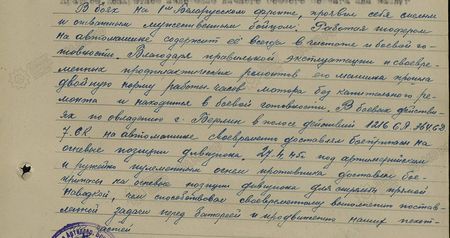 В боях на 1ом Белорусском фронте, проявил себя смелым
и отважным мужественным бойцом. Работая шофером
на автомашине содержит её всегда в чистоте и боевой го-
товности. Благодаря правильной эксплуатации и своевре-
менных профилактических ремонтов его машина прошла
двойную норму работы часов мотора без капитального ре-
монта и находится в боевой готовности. В боевых действи-
ях по овладению г. Берлин в полосе действий 1216 С.П. 364 СД
7. СК на автомашине своевременно доставлял боеприпасы на
огневые позиции дивизиона. 27.4.45г. под артиллерийским
и ружейно пулеметным огнем противника доставил бое-
припасы на огневые позиции дивизиона для стрельбы прямой
наводкой, чем способствовал своевременному выполнению постав-
ленной задачи перед батареей и продвижению наших пехот-
частей